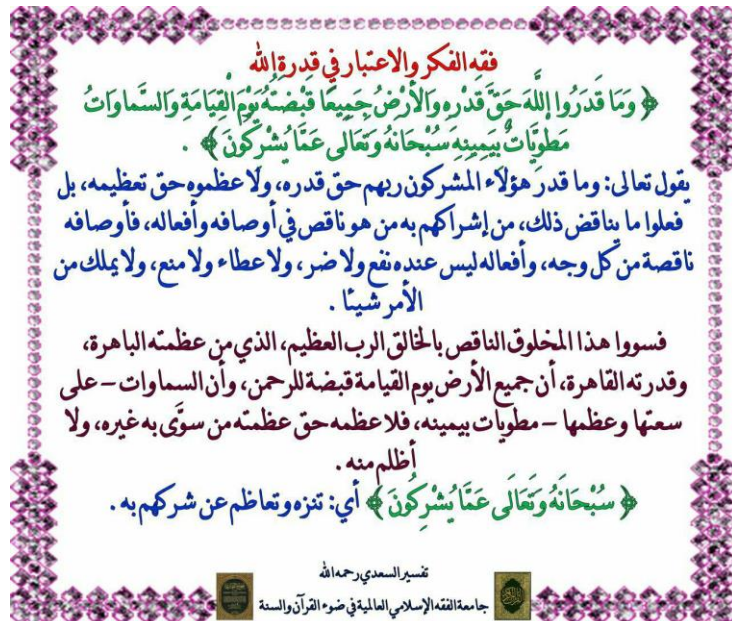 فقه الفكر والاعتبار في قدرة الله
﴿ وَمَا قَدَرُوا اللَّهَ حَقَّ قَدْرِهِ وَالْأَرْضُ جَمِيعًا قَبْضَتُهُ يَوْمَ الْقِيَامَةِ وَالسَّمَاوَاتُ
مَطْوِيَّاتٌ بِيَمِينِهِ سُبْحَانَهُ وَتَعَالَى عَمَّا يُشْرِكُونَ ﴾ .
يقول تعالى: وما قدر هؤلاء المشركون ربهم حق قدره، ولا عظموه حق تعظيمه، بل
فعلوا ما يناقض ذلك، من إشراكهم به من هو ناقص في أوصافه وأفعاله، فأوصافه
ناقصة من كل وجه، وأفعاله ليس عنده نفع ولا ضر، ولا عطاء ولا منع، ولا يملك من
الأمر شيئا .
فسووا هذا المخلوق الناقص بالخالق الرب العظيم، الذي من عظمته الباهرة،
وقدرته القاهرة، أن جميع الأرض يوم القيامة قبضة للرحمن، وأن السماوات – على
سعتها وعظمها – مطويات بيمينه، فلا عظمه حق عظمته من سوَّى به غيره، ولا
أظلم منه .
﴿ سُبْحَانَهُ وَتَعَالَى عَمَّا يُشْرِكُونَ ﴾ أي: تنزه وتعاظم عن شركهم به .
تفسير السعدي رحمه الله
جامعة الفقه الإسلامي العالمية في ضوء القرآن والسنة